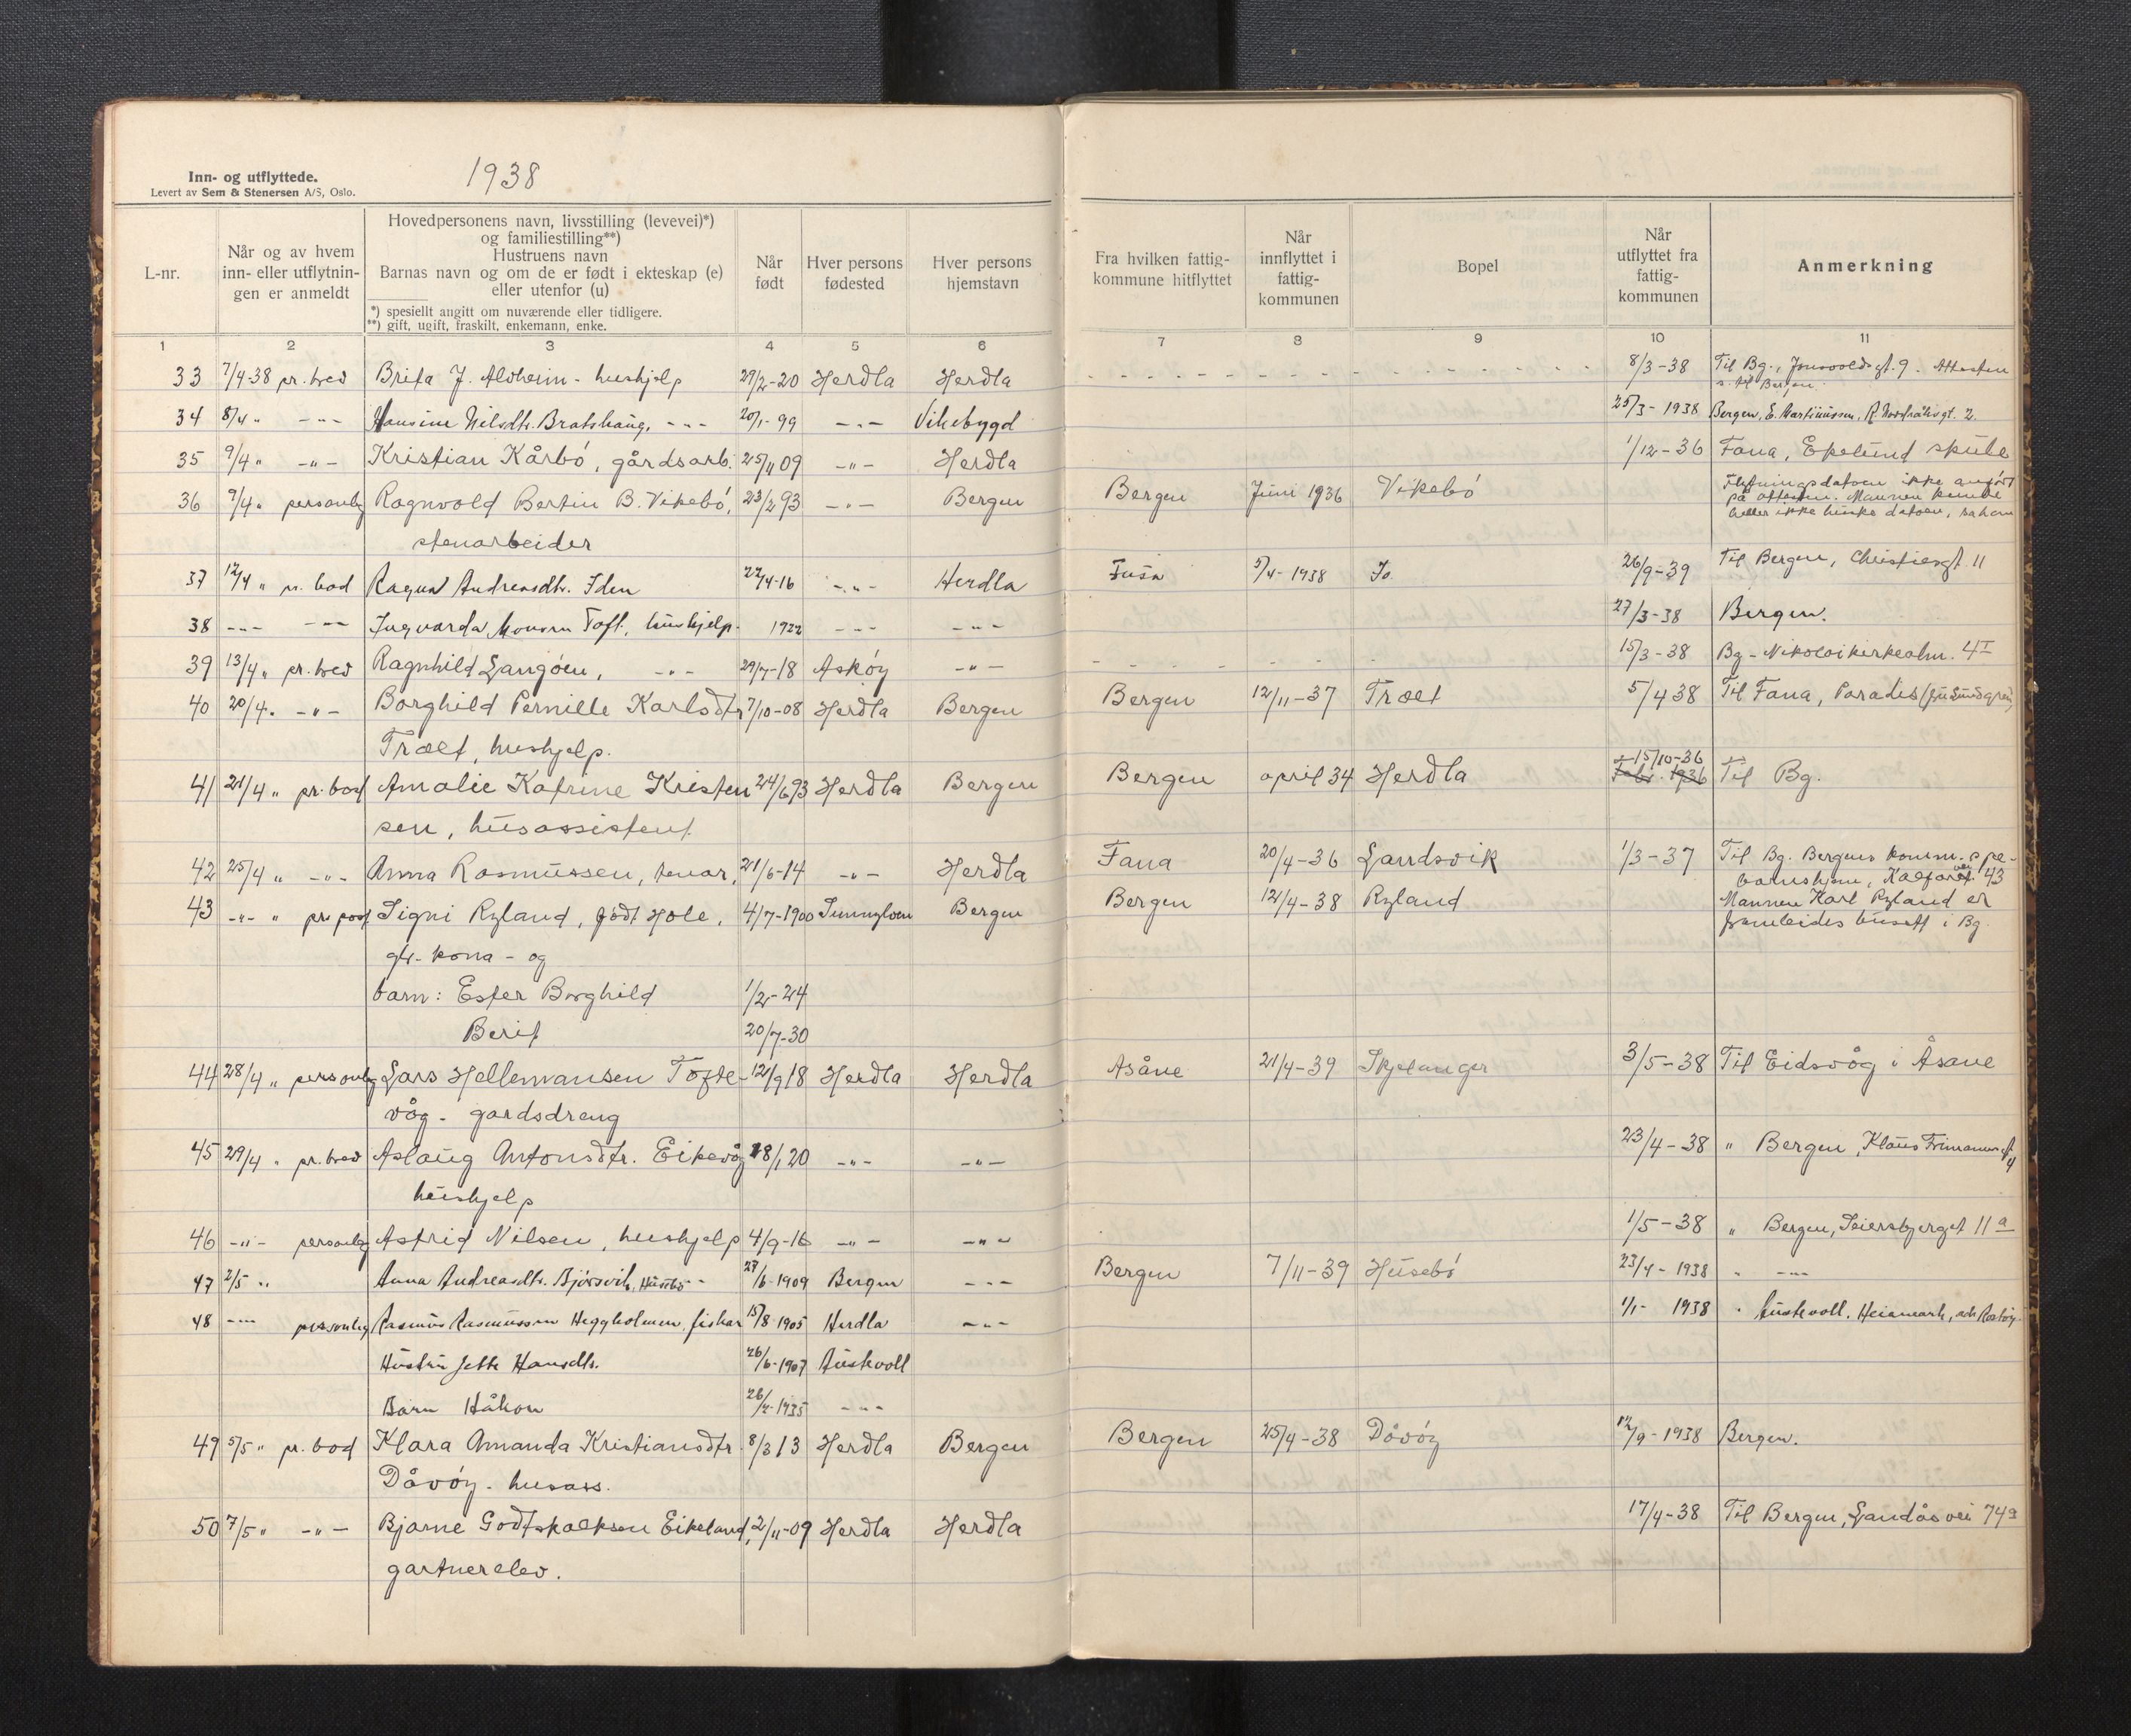 1938
Inn- og utflyttede.
Levert av Sem & Stenersen A/S, Oslo.
L-nr.
Når og av hvem
inn- eller utflytnin-
gen er anmeldt
Hovedpersonens navn, livsstilling (levevei)*)
og familiestilling**)
Hustruens navn
Barnas navn og om de er født i ekteskap (e)
eller utenfor (u)
*) spesielt angitt om nuværende eller tidligere.
**) gift, ugift, fraskilt, enkemann, enke.
Når
født
Hver persons
fødested
Hver persons
hjemstavn
Fra hvilken fattig-
kommune hitflyttet
Når
innflyttet i
fattig-
kommunen
Bopel
Når
utflyttet fra
fattig-
kommunen
Anmerkning
1 2 3 4 5 6 7 8 9 10 11
33 7/4-38 pr. bred Brita J. Aldheim - hushjelp 29/2-20 Herdla Herdla 8/3-38 Til Bg., 9. Attesten
s. til Bergen.
34 8/4 " -"- Hansine Nilsdtr. Bratshaug, -"- 20/1-99 -"- Vikebygd 25/3-1938 Bergen, E. Martinussen, 2.
35 9/4 " -"- Kristian Kårbó, gårdsarb. 25/11 09 -"- Herdla 1/12-36 Fana, Ekelund skule
36 9/4 " personleg Ragnvold Bertin B. Vikebó, 23/2 93 -"- Bergen Bergen Juni 1936 Vikebó Flytningsdatoen ikke anført
på attesten. Mannen kunde
heller ikke huske datoen, sa han
stenarbeider
37 12/4 " pr. bod Ragna Andreasdtr. Iden 22/4-16 -"- Herdla Fusa 5/4-1938 Io. 26/9-39 Til Bergen, Christiesgt. 11
38 -"- -"- Ingvarda Monsen Toft, hushjelp. 1922 -"- -"- 27/3-38 Bergen.
39 13/4 " pr. bred Ragnhild Langóen, -"- 29/7-18 Askóy -"- 15/3-38 Bg - Nikolaikirkealm. 4 I
40 20/4 " -"- Borghild Pernille Karlsdtr 7/10-08 Herdla Bergen Bergen 12/11-37 Træt 5/4 38 Til Fana, Paradis
Træt, hushjelp.
41 21/4 " pr. bod Amalie Katrine Kristen 24/6 93 Herdla Bergen Bergen april 34 Herdla 15/10-36 Febr. 1936 Til Bg.
sen, husassistent
42 25/4 " -"- Anna Rasmussen, tenar, 21/6-14 -"- Herdla Fana 20/4-36 Landsvik 1/3-37 Til Bg. Bergens komm. spe-
barnshjem, Kalfarvei 43
43 -"- " pr. post Signi Ryland, født Hole, 4/7-1900 Sunnylven Bergen Bergen 12/4-38 Ryland Mannen Karl Ryland er
framleides busett i Bg.
gt. kona - og
barn: Ester Borghild 1/2-24
Berit 20/7-30
44 28/4 " personleg Lars Hellemansen Tofte- 12/9 18 Herdla Herdla Asåne 21/4-39 Skjelanger 3/5-38 Til Eidsvåg i Åsane
våg - gardsdreng
45 29/4 " pr. bred Aslaug Antonsdtr. Eikevåg 18/1 20 -"- -"- 23/4-38 " Bergen, Klaus 4
hushjelp
46 -"- personleg Astrid Nilsen, hushjelp 4/9-16 -"- -"- 1/5-38 " Bergen, Seiersbjerget 11 a
47 2/5 " Anna Andreasdtr. Bjórsvik, Husebó - 27/6-1909 Bergen -"- Bergen 7/11-39 Husebó 23/4-1938 " -"-
48 -"- personleg Rasmus Rasmussen Heggholmen, fiskar 15/8-1905 Herdla -"- 1/1-1938 " Austevoll,
Hustru Jette Hansdtr. 26/6-1907 Austevoll
Barn Håkon 26/2-1935 -"-
49 5/5 " pr. bod Klara Amanda Kristiansdtr. 8/3 13 Herdla Bergen Bergen 25/4-38 Dåvóy 12/9-1938 Bergen.
Dåvóy - husass.
50 7/5 " -"- Bjarne Godtskalksen Eikeland, 2/11-09 Herdla Herdla 17/4-38 Til Bergen, Landåsvei 74 a
gartnerelev.